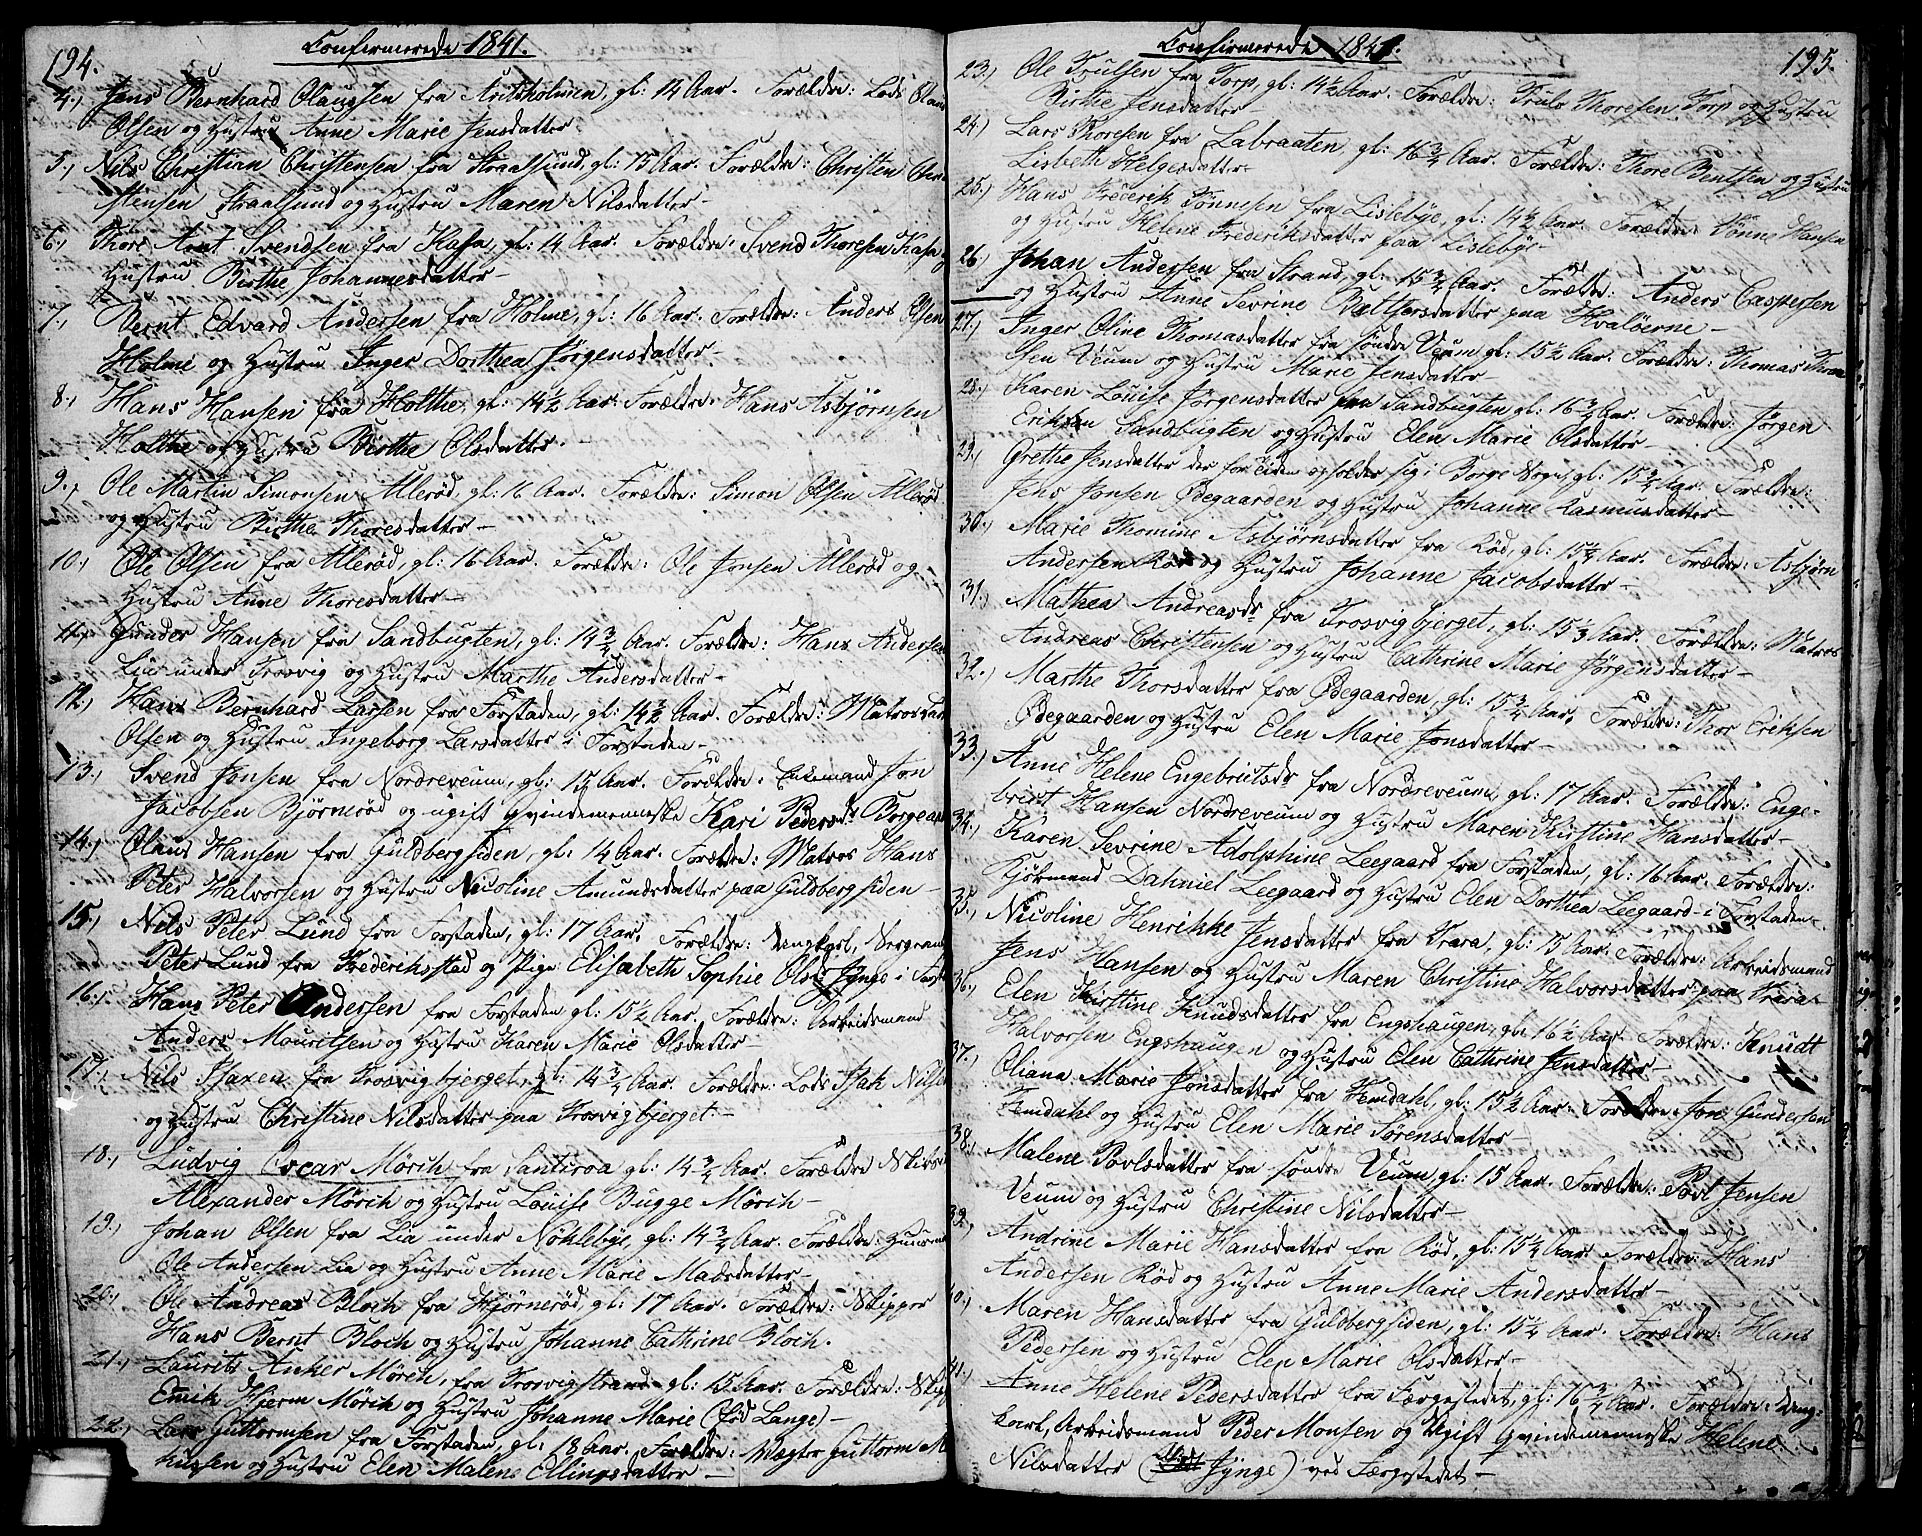 194.
Confirmerede 1841.
4.) Jens Bernhard Olaussen fra, gl: 14 Aar. Forældre: Lods Olaus
Olsen og Hustru Anne Marie Jensdatter
5.) Nils Christian Christensen fra Straalsund, gl: 15 Aar. Forældre: Christen Chri-
stensen Straalsund og Hustru Maren Nilsdatter
6.) Thore Arnt Svendsen fra Kasa, gl: 14 Aar. Forældre: Svend Thoresen Kasa og
Hustru Birthe Johannesdatter
7.) Bernt Edvard Andersen fra Holme, gl: 16 Aar. Forældre: Anders Olsen
Holme og Hustru Inger Dorthea Jörgensdatter
8.) Hans Hansen fra Holthe, gl: 14½ Aar. Forældre: Hans Asbjørnsen
Holthe og Hustru Birthe Olsdatter
9.) Ole Martin Simonsen Allerød, gl: 16 Aar. Forældre: Simon Olsen Allerød
og Hustru Birthe Thoresdatter
10.) Ole Olsen fra Allerød, gl: 16 Aar. Forældre: Ole Jonsen Allerød og
Hustru Anne Thoresdatter
11.) Gunder Hansen fra Sandbugten, gl: 14¾ Aar. Forældre: Hans Andersen
Lia under Trosvig og Hustru Marthe Andersdatter
12.) Hans Bernhard Larsen fra Forstaden, gl: 14¾ Aar. Forældre: Matros Lars
Olsen og Hustru Ingeborg Larsdatter i Forstaden
13.) Svend Jonsen fra Nordreveum, gl: 15½ Aar. Forældre: Enkemand Jon
Jacobsen Bjørnerød og ugift Qvindemenneske Kari Pedersdr Borge
14.) Olaus Hansen fra Guldbergsiden, gl: 14 Aar. Forældre: Matros Hans
Peter Halvorsen og Hustru Nicoline Amundsdatter paa Guldbergsiden
15.) Nils Peter Lund fra Forstaden, gl: 17 Aar. Forældre: Ungkarl,
Peter Lund fra Frederikstad og Pige Elisabeth Sophie Olsdr Jynge i
16.) Hans Peter Andersen fra Forstaden gl: 15½ Aar. Forældre: Arbeidsmand
Anders Mouritsen og Hustru Karen Marie Olsdatter
17.) Nils Isaxen fra Trosvigbjerget, gl: 14¾ Aar. Forældre: Lods Isak Nilsen
og Hustru Christine Nilsdatter paa Trosvigbjerget
18.) Ludvig Oscar Mörch fra gl: 14¾ Aar. Forældre
Alexander Mörch og Hustru Louise Bugge Mörch
19.) Johan Olsen fra Lia under Nöklebye, gl: 14¾ Aar. Forældre: Huusmand
Ole Andersen Lia og Hustru Anne Marie Madsdatter
20.) Ole Andreas Bloch fra Hjørnerød, gl: 17 Aar. Forældre: Skipper
Hans Bernt Bloch og Hustru Johanne Cathrine Bloch.
21.) Laurits Anker Mörch, fra Trosvigstrand gl: 15 Aar. Forældre:
Hjerm Mörch og Hustru Johanne Marie (fød Lange)
22.) Lars Guttormsen fra Forstaden, gl: 18 Aar. Forældre: Vægter Guttorm
og Hustru Elen Malene Ellingsdatter
195.
Confirmerede 1841.
23.) Ole Trulsen fra Torp, gl: 14½ Aar. Forældre: Truls Thoresen Torp og Hustru
Birthe Jensdatter
24.) Lars Thoresen fra Labraaten gl: 16¾ Aar. Forældre: Thore Bentsen og Hustru
Lisbeth Helgesdatter
25.) Hans Frederik Tönnesen fra Lislebye, gl: 14½ Aar. Forældre: Tönne Hansen
og Hustru Helene Frederiksdatter paa Lislebye
26.) Johan Andersen fra Strand, gl: 15¾ Aar. Forældre: Anders Caspersen
og Hustru Anne Sevrine paa Hvaløerne
27.) Inger Oline Thomasdatter fra söndre Veum gl: 15½ Aar. Forældre: Thomas
sen Veum og Hustru Marie Jensdatter
28.) Karen Louise Jörgensdatter fra Sandbugten gl: 16¾ Aar. Forældre: Jörgen
Eriksen Sandbugten og Hustru Elen Marie Olsdatter
29.) Grethe Jensdatter der for Tiden opholder sig i Borge Sogn, gl: 15¾ Aar. Forældre:
Jens Jonsen Ødegaarden og Hustru Johanne Rasmusdatter
30.) Marie Thomine Asbjørnsdatter fra Röd, gl: 15¼ Aar. Forældre: Asbjørn
Andersen Röd og Hustru Johanne Jacobsdatter
31.) Mathea Andreasdr fra Trosvigbjerget, gl: 15⅓ Aar. Forældre: Matros
Andreas Christensen og Hustru Cathrine Marie Jörgensdatter
32.) Marthe Thorsdatter fra Ødegaarden, gl: 15¾ Aar. Forældre: Thor Eriksen
Ødegaarden og Hustru Elen Marie Jonsdatter
33.) Anne Helene Engebrietsdr fra Nordreveum, gl: 17 Aar. Forældre: Enge-
briet Hansen Nordreveum og Hustru Maren Kirstine Hansdatter
34.) Karen Sevrine Adolphine Leegaard fra Forstaden, gl: 16 Aar. Forældre:
Kjöbmand Dahniel Leegaard og Hustru Elen Dorthea Leegaard i Forstaden
35.) Nicoline Henrikke Jensdatter fra Krara, gl: 15 Aar. Forældre: Arbeidsmand
Jens Hansen og Hustru Maren Christine Halvorsdatter paa Krara
36.) Elen Kirstine Knudsdatter fra Engshaugen, gl: 16½ Aar. Forældre: Knudt
Halvorsen Engshaugen og Hustru Elen Cathrine Jensdatter
37.) Oliana Marie Jonsdatter fra Femdahl, gl: 15½ Aar. Forældre: Jon Gundersen
Femdahl og Hustru Elen Marie Sörensdatter
38.) Malene Povlsdatter fra söndre Veum, gl: 15 Aar. Forældre: Povl Jensen
Veum og Hustru Christine Nilsdatter
39.) Andrine Marie Hansdatter fra Röd, gl: 15¼ Aar. Forældre: Hans
Andersen Röd og Hustru Anne Marie Andersdatter
40.) Maren Hansdatter fra Guldbergsiden, gl: 15¼ Aar. Forældre: Hans
Pedersen og Hustru Elen Marie Olsdatter
41.) Anne Helene Pedersdatter fra Færgestedet, gl: 16¾ Aar. Forældre: Ung-
karl, Arbeidsmand Peder Monsen og Ugift Qvindemenneske Helene
Nilsdatter (Jynge) ved Færgestedet